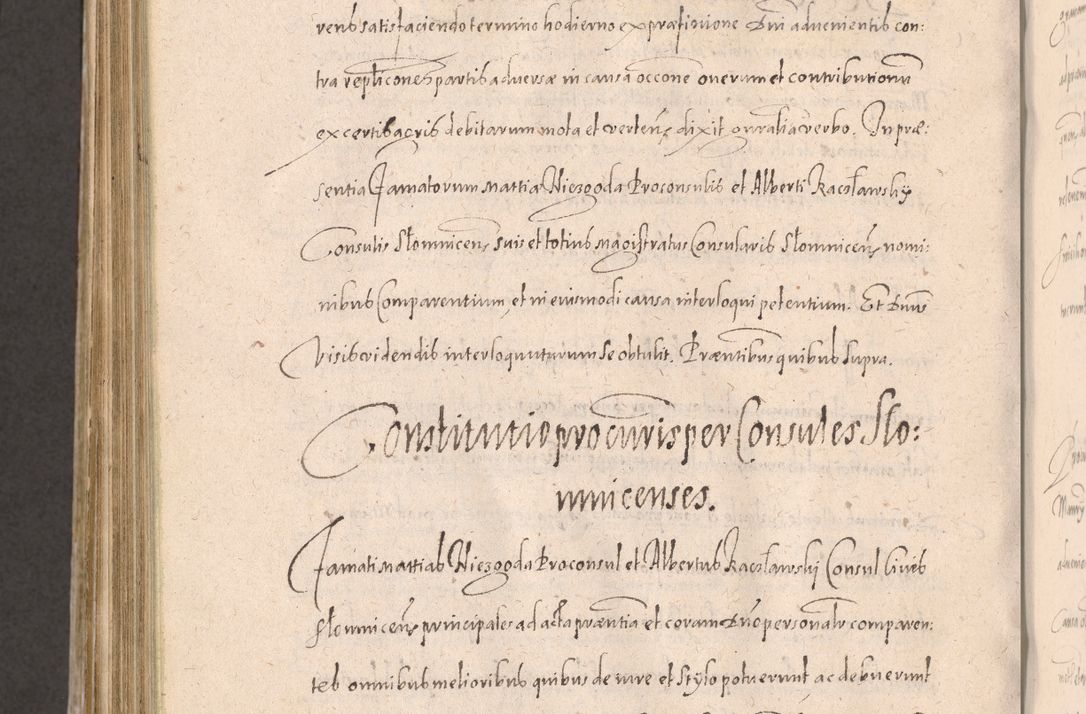 renb satisfaciendo termino hodierno ex præfixione Dni advenientib con:
tra replicones partis adversæ in causa occone onerum et contributionũ
ex certis agris debitarum mota et verten dixit gnralia verbo. In præ:
sentia Famatorum Mattiæ Niezgoda Proconsulis et Alberti Raczlawsky
Consulis Słomnicen suis et totius magistratus Consularis Słomnicen nomi:
nibus Comparentium, et in eiusmodi causa interloqui petentium. Et Dnus
Visis videndis interloquuturum se obtulit. Præntibus quibus supra.
Constitutio procuris per Consules Slo:
mnicenses.
Famati Mattias Niezgoda Proconsul et Albertus Raczlawskj Consul Cives
Słomnicen principales ad acta præntia et coram Dno personalr comparen:
tes omnibus melioribus quibus de iure et stylo potuerunt ac debuerunt